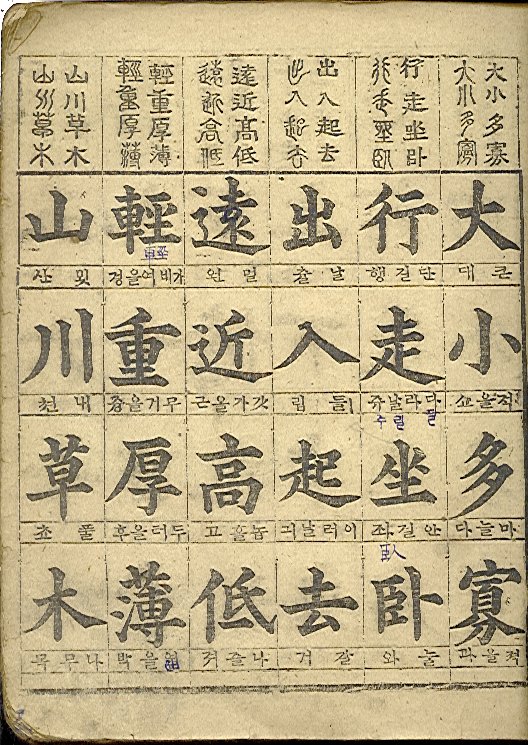 大小多寡
大小多寡
行走坐臥
行走坐臥
出入起去
出入起去
遠近高低
遠近高低
輕重厚薄
輕重厚薄
山川草木
山川草木
大
큰 대
小
적을쇼
多
마늘다
寡
적을과
行
단길행
走
다라날쥬
坐
안길좌
臥
눌 와
出
날 츌
入
들 립
起
이러날긔
去
갈 거
遠
멀 원
近
갓가을근
高
놉흘고
低
나즐저
輕
가비여을경
重
무거을즁
厚
두터을후
薄
을박
山
뫼 산
川
내 쳔
草
풀 쵸
木
나무목